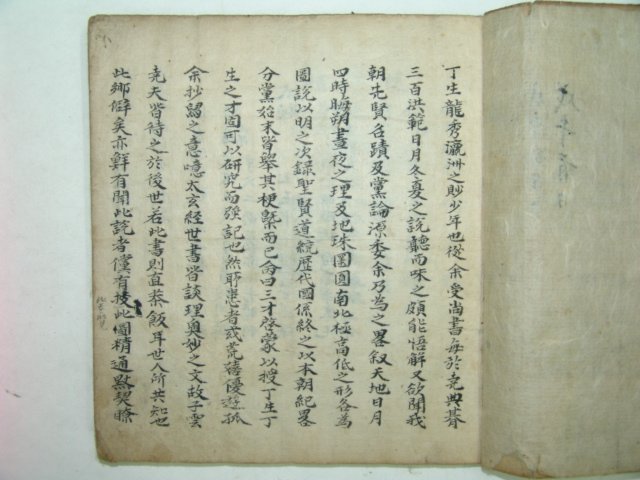 丁生龍秀瀛洲之妙少年也從余受尚書每於堯典朞
三百洪範日月冬夏之說聽而味之頗能悟解又欲聞我
朝先賢名蹟及黨論源委余乃為之畧叙天地日月
四時晦朔晝夜之理及地球圜圓南北極高低之形各為
圖說以明之次錄聖賢道統歷代國係終之以本朝紀畧
分黨始末皆擧其梗槩而已命曰三才啓蒙以授丁生丁
生之才固可以研究而强記也然耶患者或荒嬉優遊孤
余抄錄之意噫太玄經世書皆談理奧妙之文故子雲
堯天皆待之於後世若此書則直茶飯耳世人所共知也
此鄉僻矣亦鮮有聞此說者僅有按此圖精通默契瞭